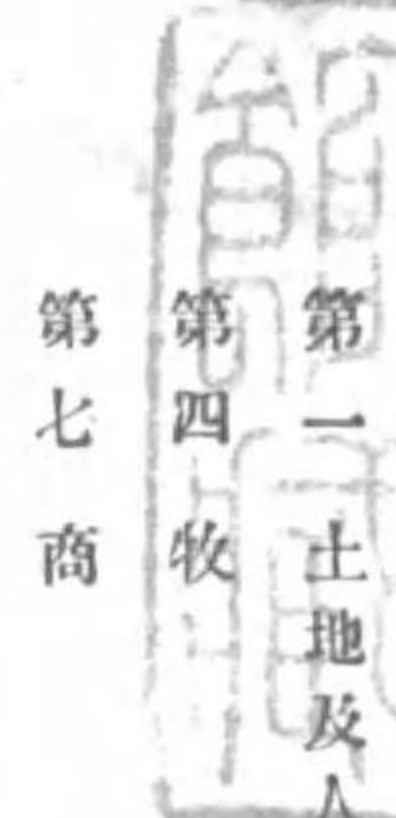 第一 土地及人
第四 牧
第七 商